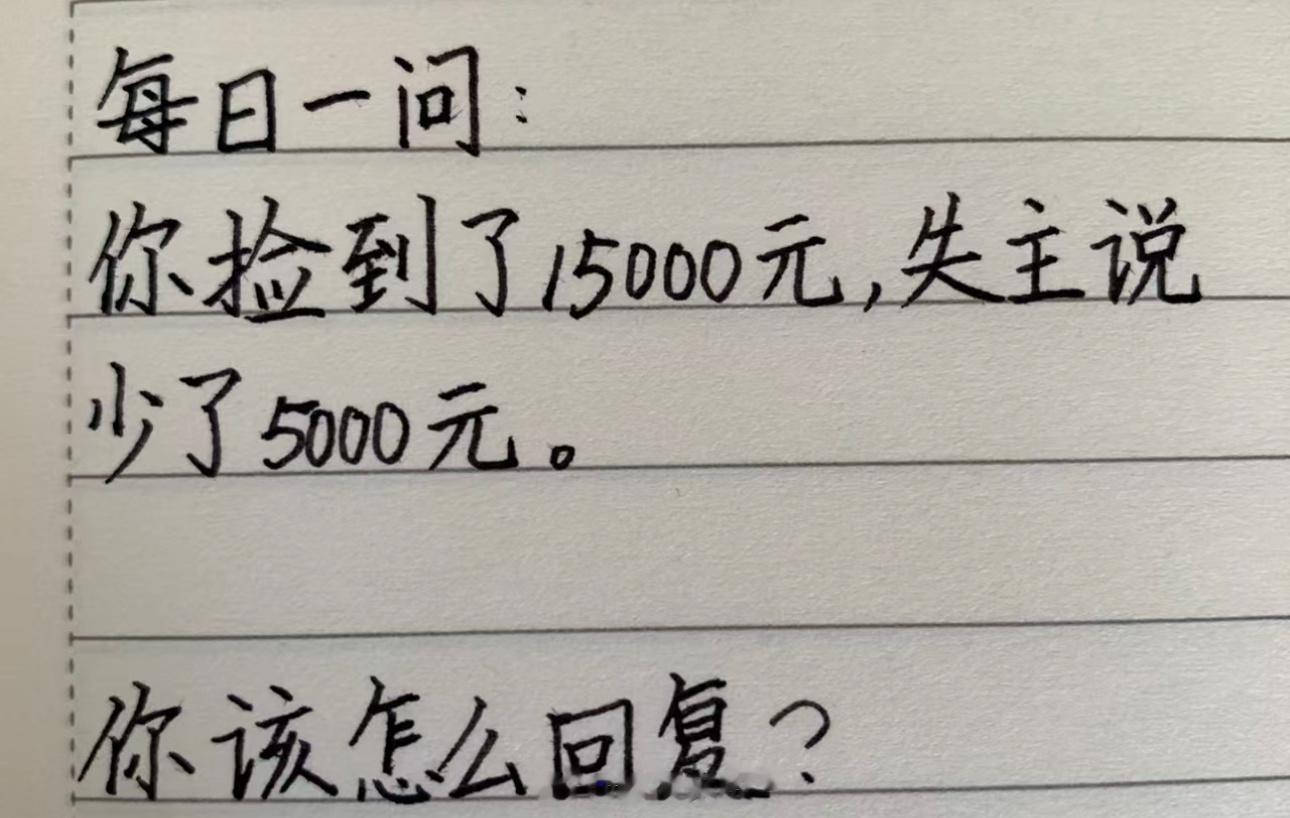 每日一问:
你捡到了15000元,失主说
少了5000元。
你该怎么回复?